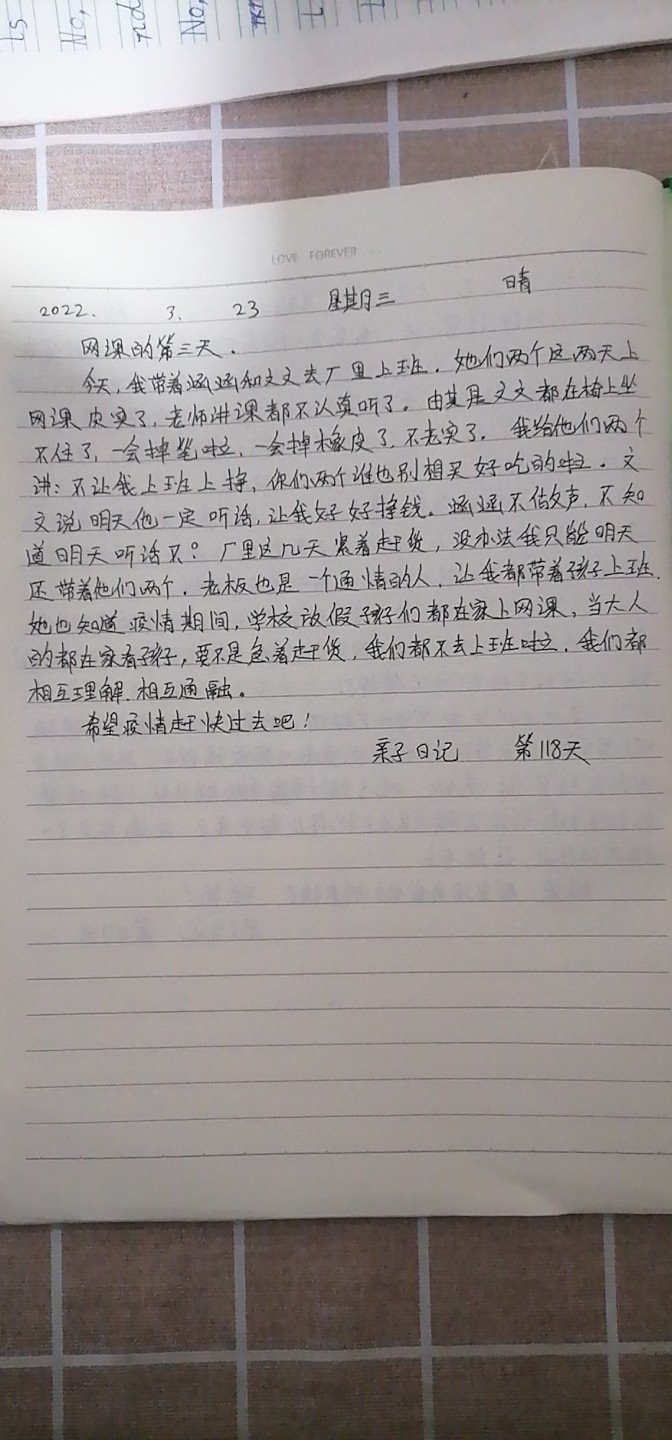 LOVE FOREVER...
2022. 3. 23 星期三 晴
网课的第三天.
今天,我带着涵涵和文文去厂里上班.她们两个这两天上
网课皮实了,老师讲课都不认真听了。由其是文文都在椅上坐
不住了,一会掉笔啦,一会掉橡皮了,不老实了.我给他们两个
讲:不让我上班上挣,你们两个谁也别想买好吃的啦.文
文说明天他一定听话,让我好好挣钱。涵涵不做声,不知
道明天听话不?厂里这几天紧着赶货,没办法我只能明天
还带着他们两个.老板也是一个通情的人,让我都带着孩子上班.
她也知道疫情期间,学校放假孩子们都在家上网课,当大人
的都在家看孩子,要不是急着赶货,我们都不去上班啦.我们都
相互理解.相互通融。
希望疫情赶快过去吧!
亲子日记 第118天